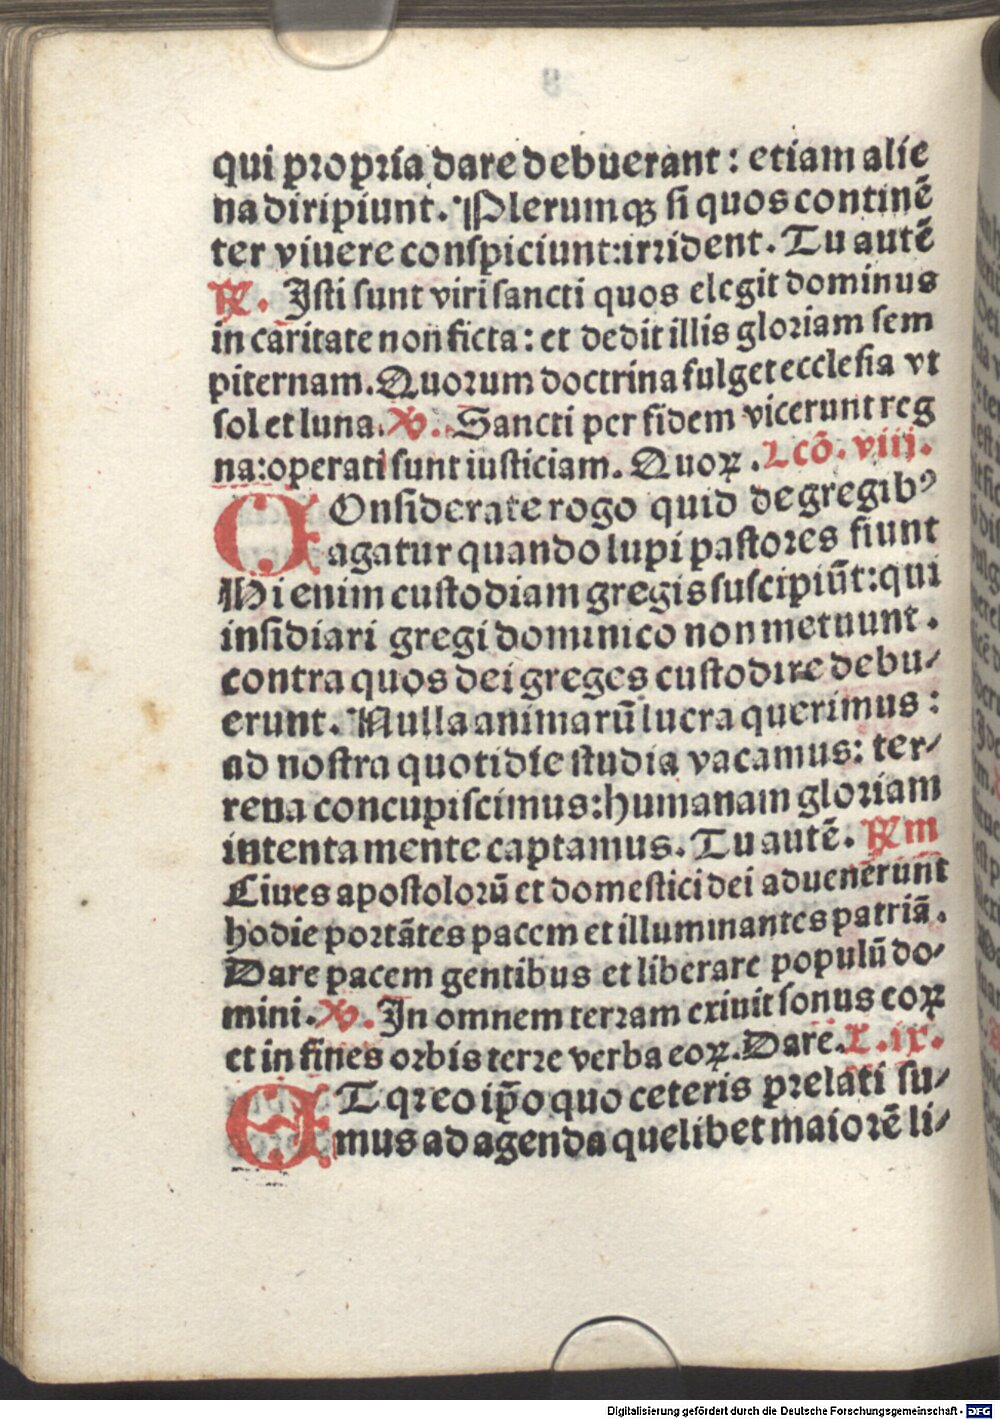 qui propria dare debuerant: etiam alie
na diripiunt. Plerumqꝫ si quos continē
ter viuere conspiciunt:irrident. Tu autē
℟. Isti sunt viri sancti quos elegit dominus
in caritate non ficta: et dedit illis gloriam sem
piternam. Quorum doctrina fulget ecclesia vt
sol et luna. ℣. Sancti per fidem vicerunt reg
na:operati sunt iusticiam. Quoꝝ. Lcō. viij.
COnsiderate rogo quid de gregibꝰ
agatur quando lupi pastores fiunt
Hi enim custodiam gregis suscipiūt:qui
insidiari gregi dominico non metuunt.
contra quos dei greges custodire debu⸗
erunt. Nulla animarū lucra querimus:
ad nostra quotidie studia vacamus: ter⸗
rena concupiscimus:humanam gloriam
intentamente captamus. Tu autē. ℟m
Ciues apostolorū et domestici dei aduenerunt
hodie portātes pacem et illuminantes patriā.
Dare pacem gentibus et liberare populū do⸗
mini. ℣. In omnem terram exiuit sonus eoꝝ
et in fines orbis terre verba eoꝝ. Dare. L. ix.
ET qr eo ip̄o quo ceteris prelati su⸗
mus ad agenda quelibet maiorē li⸗
Digitalisierung gefördert durch die Deutsche Forschungsgemeinschaft - DFG